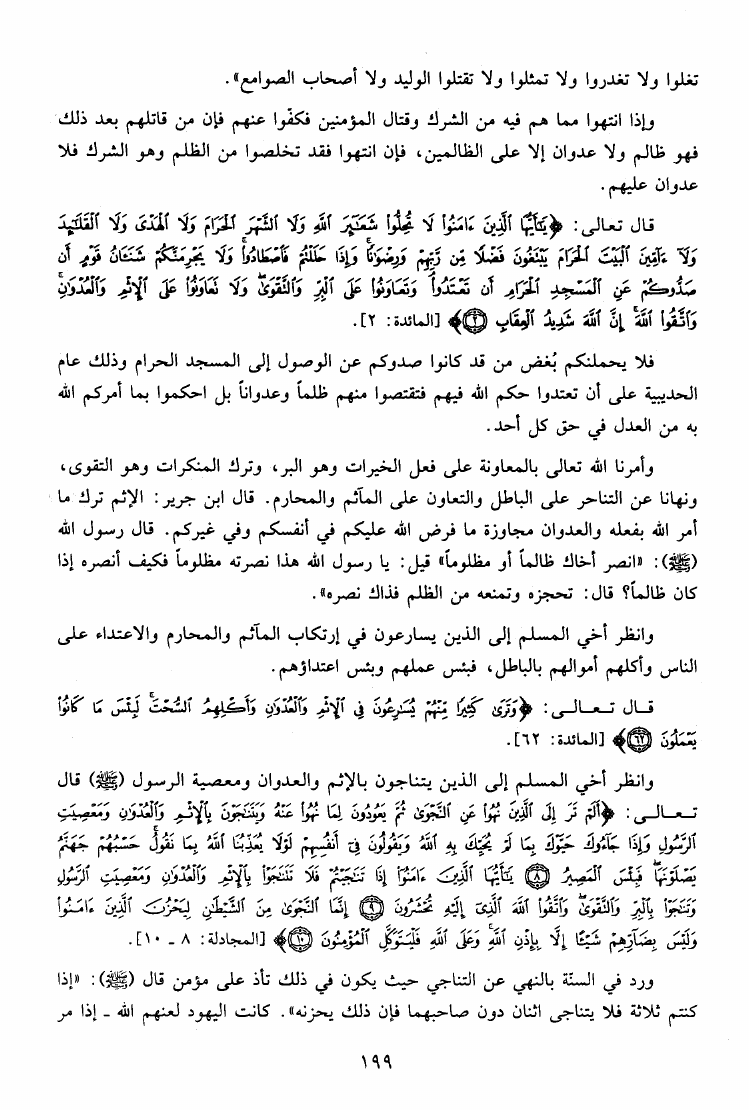 تغلوا ولا تغدروا ولا تمثلوا ولا تقتلوا الوليد ولا أصحاب الصوامع».
وإذا انتهوا مما هم فيه من الشرك وقتال المؤمنين فكفّوا عنهم فإن من قاتلهم بعد ذلك
فهو ظالم ولا عدوان إلا على الظالمين، فإن انتهوا فقد تخلصوا من الظلم وهو الشرك فلا
عدوان عليهم.
قال تعالى: ﴿يَٰٓأَيُّهَا ٱلَّذِينَ ءَامَنُوا۟ لَا تُحِلُّوا۟ شَعَٰٓئِرَ ٱللَّهِ وَلَا ٱلشَّهْرَ ٱلْحَرَامَ وَلَا ٱلْهَدْىَ وَلَا ٱلْقَلَٰٓئِدَ
وَلَآ ءَآمِّينَ ٱلْبَيْتَ ٱلْحَرَامَ يَبْتَغُونَ فَضْلًا مِّن رَّبِّهِمْ وَرِضْوَٰنًا ۚ وَإِذَا حَلَلْتُمْ فَٱصْطَادُوا۟ ۚ وَلَا يَجْرِمَنَّكُمْ شَنَـَٔانُ قَوْمٍ أَن
صَدُّوكُمْ عَنِ ٱلْمَسْجِدِ ٱلْحَرَامِ أَن تَعْتَدُوا۟ ۘ وَتَعَاوَنُوا۟ عَلَى ٱلْبِرِّ وَٱلتَّقْوَىٰ ۖ وَلَا تَعَاوَنُوا۟ عَلَى ٱلْإِثْمِ وَٱلْعُدْوَٰنِ ۚ
وَٱتَّقُوا۟ ٱللَّهَ ۖ إِنَّ ٱللَّهَ شَدِيدُ ٱلْعِقَابِ ٢﴾ [المائدة: ٢].
فلا يحملنكم بُغض من قد كانوا صدوكم عن الوصول إلى المسجد الحرام وذلك عام
الحديبية على أن تعتدوا حكم الله فيهم فتقتصوا منهم ظلماً وعدواناً بل احكموا بما أمركم الله
به من العدل في حق كل أحد.
وأمرنا الله تعالى بالمعاونة على فعل الخيرات وهو البر، وترك المنكرات وهو التقوى،
ونهانا عن التناحر على الباطل والتعاون على المآثم والمحارم. قال ابن جرير: الإثم ترك ما
أمر الله بفعله والعدوان مجاوزة ما فرض الله عليكم في أنفسكم وفي غيركم. قال رسول الله
(ﷺ): «انصر أخاك ظالماً أو مظلوماً» قيل: يا رسول الله هذا نصرته مظلوماً فكيف أنصره إذا
كان ظالماً؟ قال: تحجزه وتمنعه من الظلم فذاك نصره».
وانظر أخي المسلم إلى الذين يسارعون في إرتكاب المآثم والمحارم والاعتداء على
الناس وأكلهم أموالهم بالباطل، فبئس عملهم وبئس اعتداؤهم.
قال تعالى: ﴿وَتَرَىٰ كَثِيرًا مِّنْهُمْ يُسَٰرِعُونَ فِى ٱلْإِثْمِ وَٱلْعُدْوَٰنِ وَأَكْلِهِمُ ٱلسُّحْتَ ۚ لَبِئْسَ مَا كَانُوا۟
يَعْمَلُونَ ٦٢﴾ [المائدة: ٦٢].
وانظر أخي المسلم إلى الذين يتناجون بالإثم والعدوان ومعصية الرسول (ﷺ) قال
تعالى: ﴿أَلَمْ تَرَ إِلَى ٱلَّذِينَ نُهُوا۟ عَنِ ٱلنَّجْوَىٰ ثُمَّ يَعُودُونَ لِمَا نُهُوا۟ عَنْهُ وَيَتَنَٰجَوْنَ بِٱلْإِثْمِ وَٱلْعُدْوَٰنِ وَمَعْصِيَتِ
ٱلرَّسُولِ وَإِذَا جَآءُوكَ حَيَّوْكَ بِمَا لَمْ يُحَيِّكَ بِهِ ٱللَّهُ وَيَقُولُونَ فِىٓ أَنفُسِهِمْ لَوْلَا يُعَذِّبُنَا ٱللَّهُ بِمَا نَقُولُ ۚ حَسْبُهُمْ جَهَنَّمُ
يَصْلَوْنَهَا ۖ فَبِئْسَ ٱلْمَصِيرُ ٨ يَٰٓأَيُّهَا ٱلَّذِينَ ءَامَنُوٓا۟ إِذَا تَنَٰجَيْتُمْ فَلَا تَتَنَٰجَوْا۟ بِٱلْإِثْمِ وَٱلْعُدْوَٰنِ وَمَعْصِيَتِ ٱلرَّسُولِ
وَتَنَٰجَوْا۟ بِٱلْبِرِّ وَٱلتَّقْوَىٰ ۖ وَٱتَّقُوا۟ ٱللَّهَ ٱلَّذِىٓ إِلَيْهِ تُحْشَرُونَ ٩ إِنَّمَا ٱلنَّجْوَىٰ مِنَ ٱلشَّيْطَٰنِ لِيَحْزُنَ ٱلَّذِينَ ءَامَنُوا۟
وَلَيْسَ بِضَآرِّهِمْ شَيْـًٔا إِلَّا بِإِذْنِ ٱللَّهِ ۚ وَعَلَى ٱللَّهِ فَلْيَتَوَكَّلِ ٱلْمُؤْمِنُونَ ١٠﴾ [المجادلة: ٨ ـ ١٠].
ورد في السنّة بالنهي عن التناجي حيث يكون في ذلك تأذ على مؤمن قال (ﷺ): «إذا
كنتم ثلاثة فلا يتناجى اثنان دون صاحبهما فإن ذلك يحزنه». كانت اليهود لعنهم الله ـ إذا مر
١٩٩